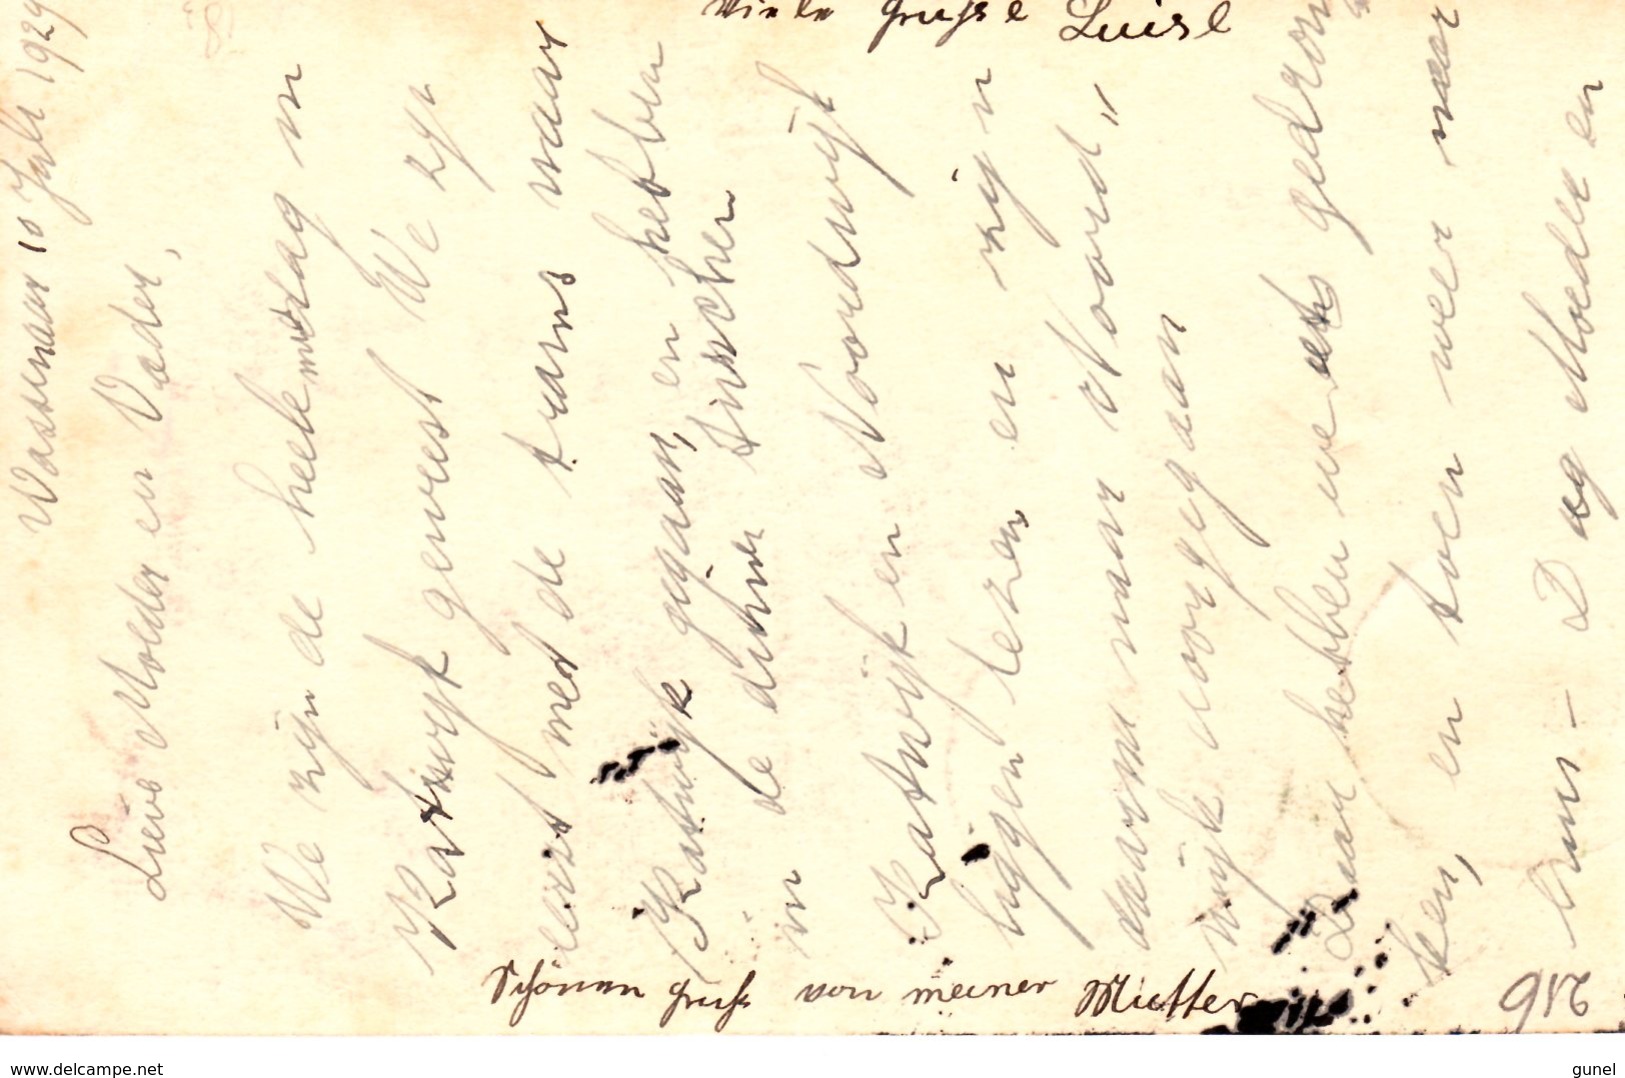 Wassenaar 10 Juli 1929
Lieve Moeder en Vader,
We zijn de heele middag in
Katwijk geweest We zijn
eerst met de trams naar
Katwijk gegaan, en hebben
in de duinen tusschen
Katwijk en Noordwijk
liggen lezen en zijn
daarna naar Noord„
wijk doorgegaan
Daar hebben we wat gedron
ken, en toen weer naar
huis - Dag Moeder en
Viele Grüsse Luise
Schönen Gruss von meiner Mutter
916
www.delcampe.net
gunel